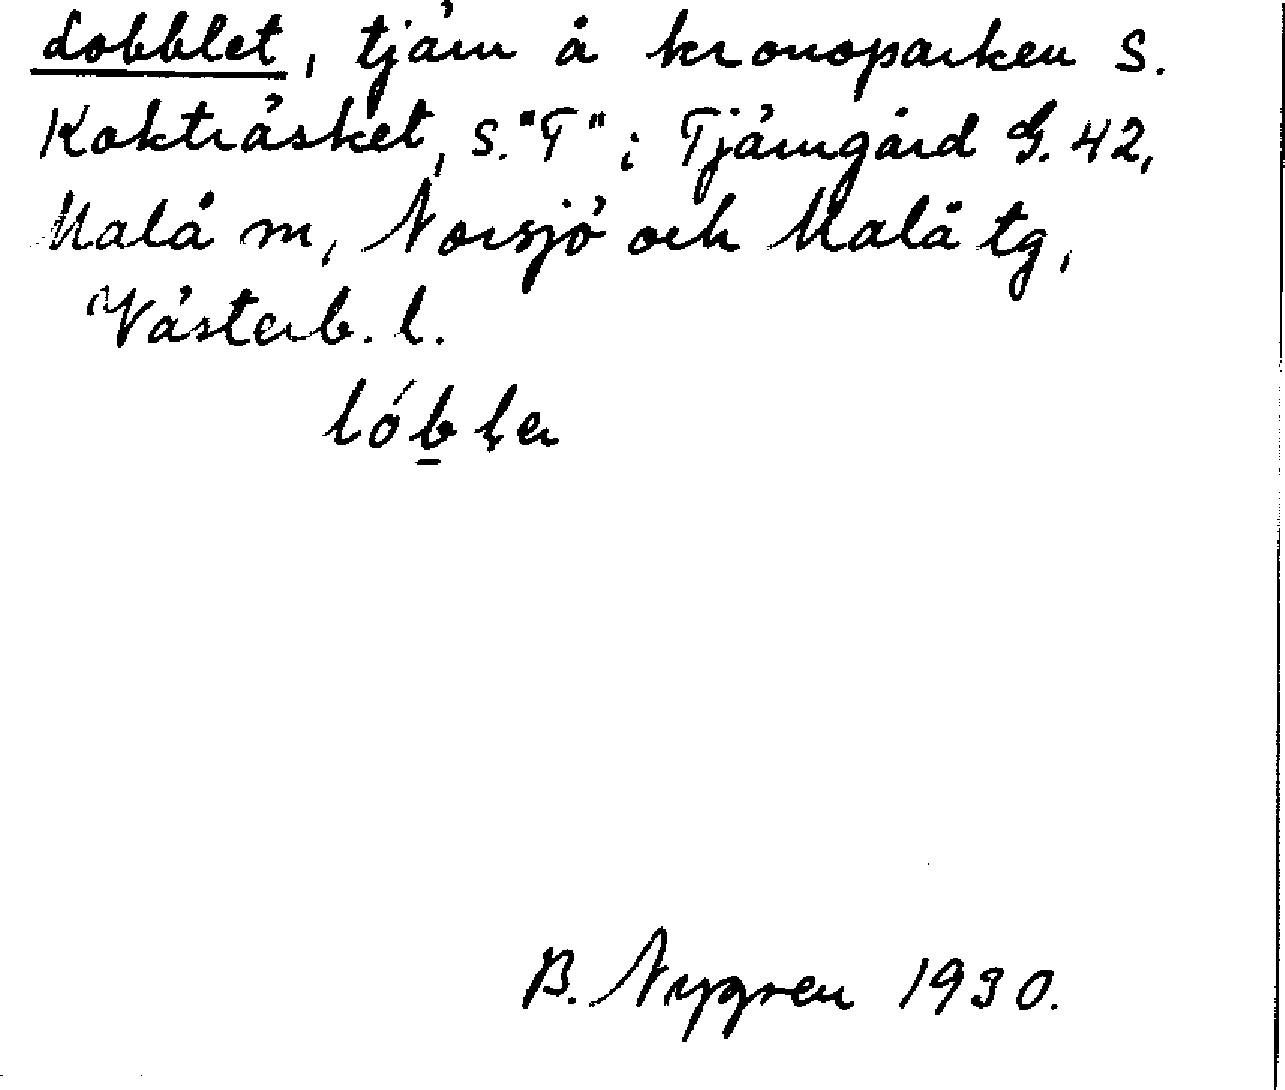 dobblet, tjärn å kronoparken S.
Kokträsket, S. "T" i Tjärngård G. 42,
Malå m, Norsjö och Malå tg,
Västerb. l.
lób la
B. Nygren 1930.